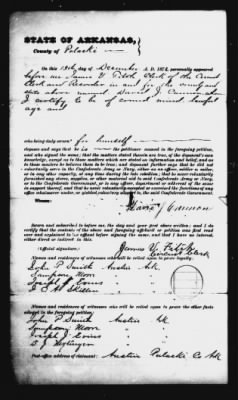 STATE OF ARKANSAS,
County of Pulaski
On this 19th day of December A. D. 1872, personally appeared
before me James V. Fitch Clerk of the Circuit
Clerk and Recorder in and for the county and
state above named David J. Cannon whom
I certify to be of sound mind lawful
age and
who being duly sworn for himself
deposes and says that he is the petitioner named in the foregoing petition,
and who signed the same; that the matters stated therein are true, of the deponent's own
knowledge, except as to those matters which are stated on information and belief, and as
to those matters he believes them to be true; and deponent further says that he did not
voluntarily serve in the Confederate Army or Navy, either as an officer, soldier or sailor,
or in any other capacity, at any time during the late rebellion; that he never voluntarily
furnished any stores, supplies, or other material aid to said Confederate Army or Navy,
or to the Confederate Government, or to any officer, department or adherent of the same
in support thereof, and that he never voluntarily accepted or exercised the functions of any
office whatsoever under, or yielded voluntary support to, the said Confederate Government.
David J Cannon
Sworn and subscribed to before me, the day and year first above written; and I do
certify that the contents of the above and foregoing affidavit or petition was first read
over and explained to before signing the same, and that I have no interest,
either direct or indirect in this.
Official signature: James V. Fitch
Circuit Clerk
Names and residences of witnesses who will be relied upon to prove loyalty:
John P. Smith Austin Ark
Simpson Moon
Joseph J
Names and residences of witnesses who will be relied upon to prove the other facts
alleged in the foregoing petition:
John P. Smith Austin Ark
Simpson Moon
Joseph J
Post-office address of claimant: Austin Pulaski Co Ark